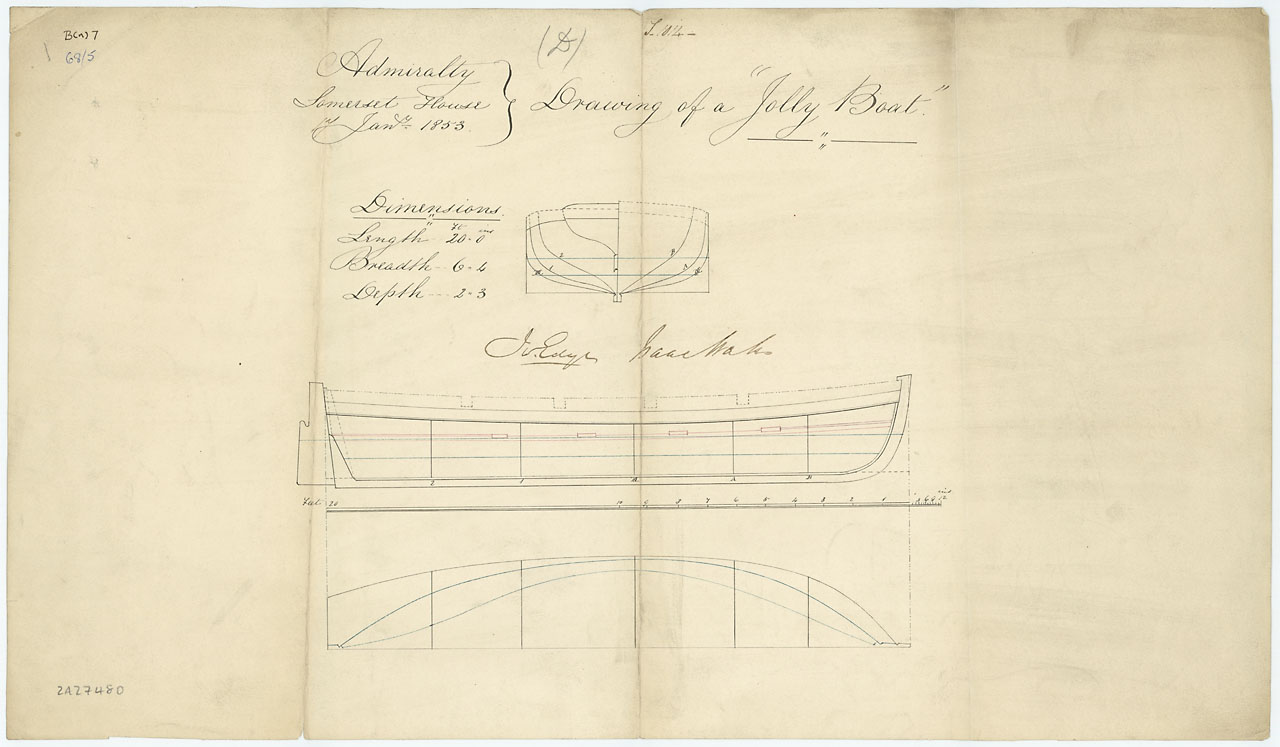 B(n) 7
68/5
(D)
Admiralty
Somerset House
1st Jany 1853.
Drawing of a "Jolly Boat."
Dimensions.
Ft ins
Length 20-0
Breadth 6-4
Depth 2-3
Jn. Edye
2
1
B
A
2 1 A B
Feet 20 10 9 8 7 6 5 4 3 2 1 ins 12
2A27480